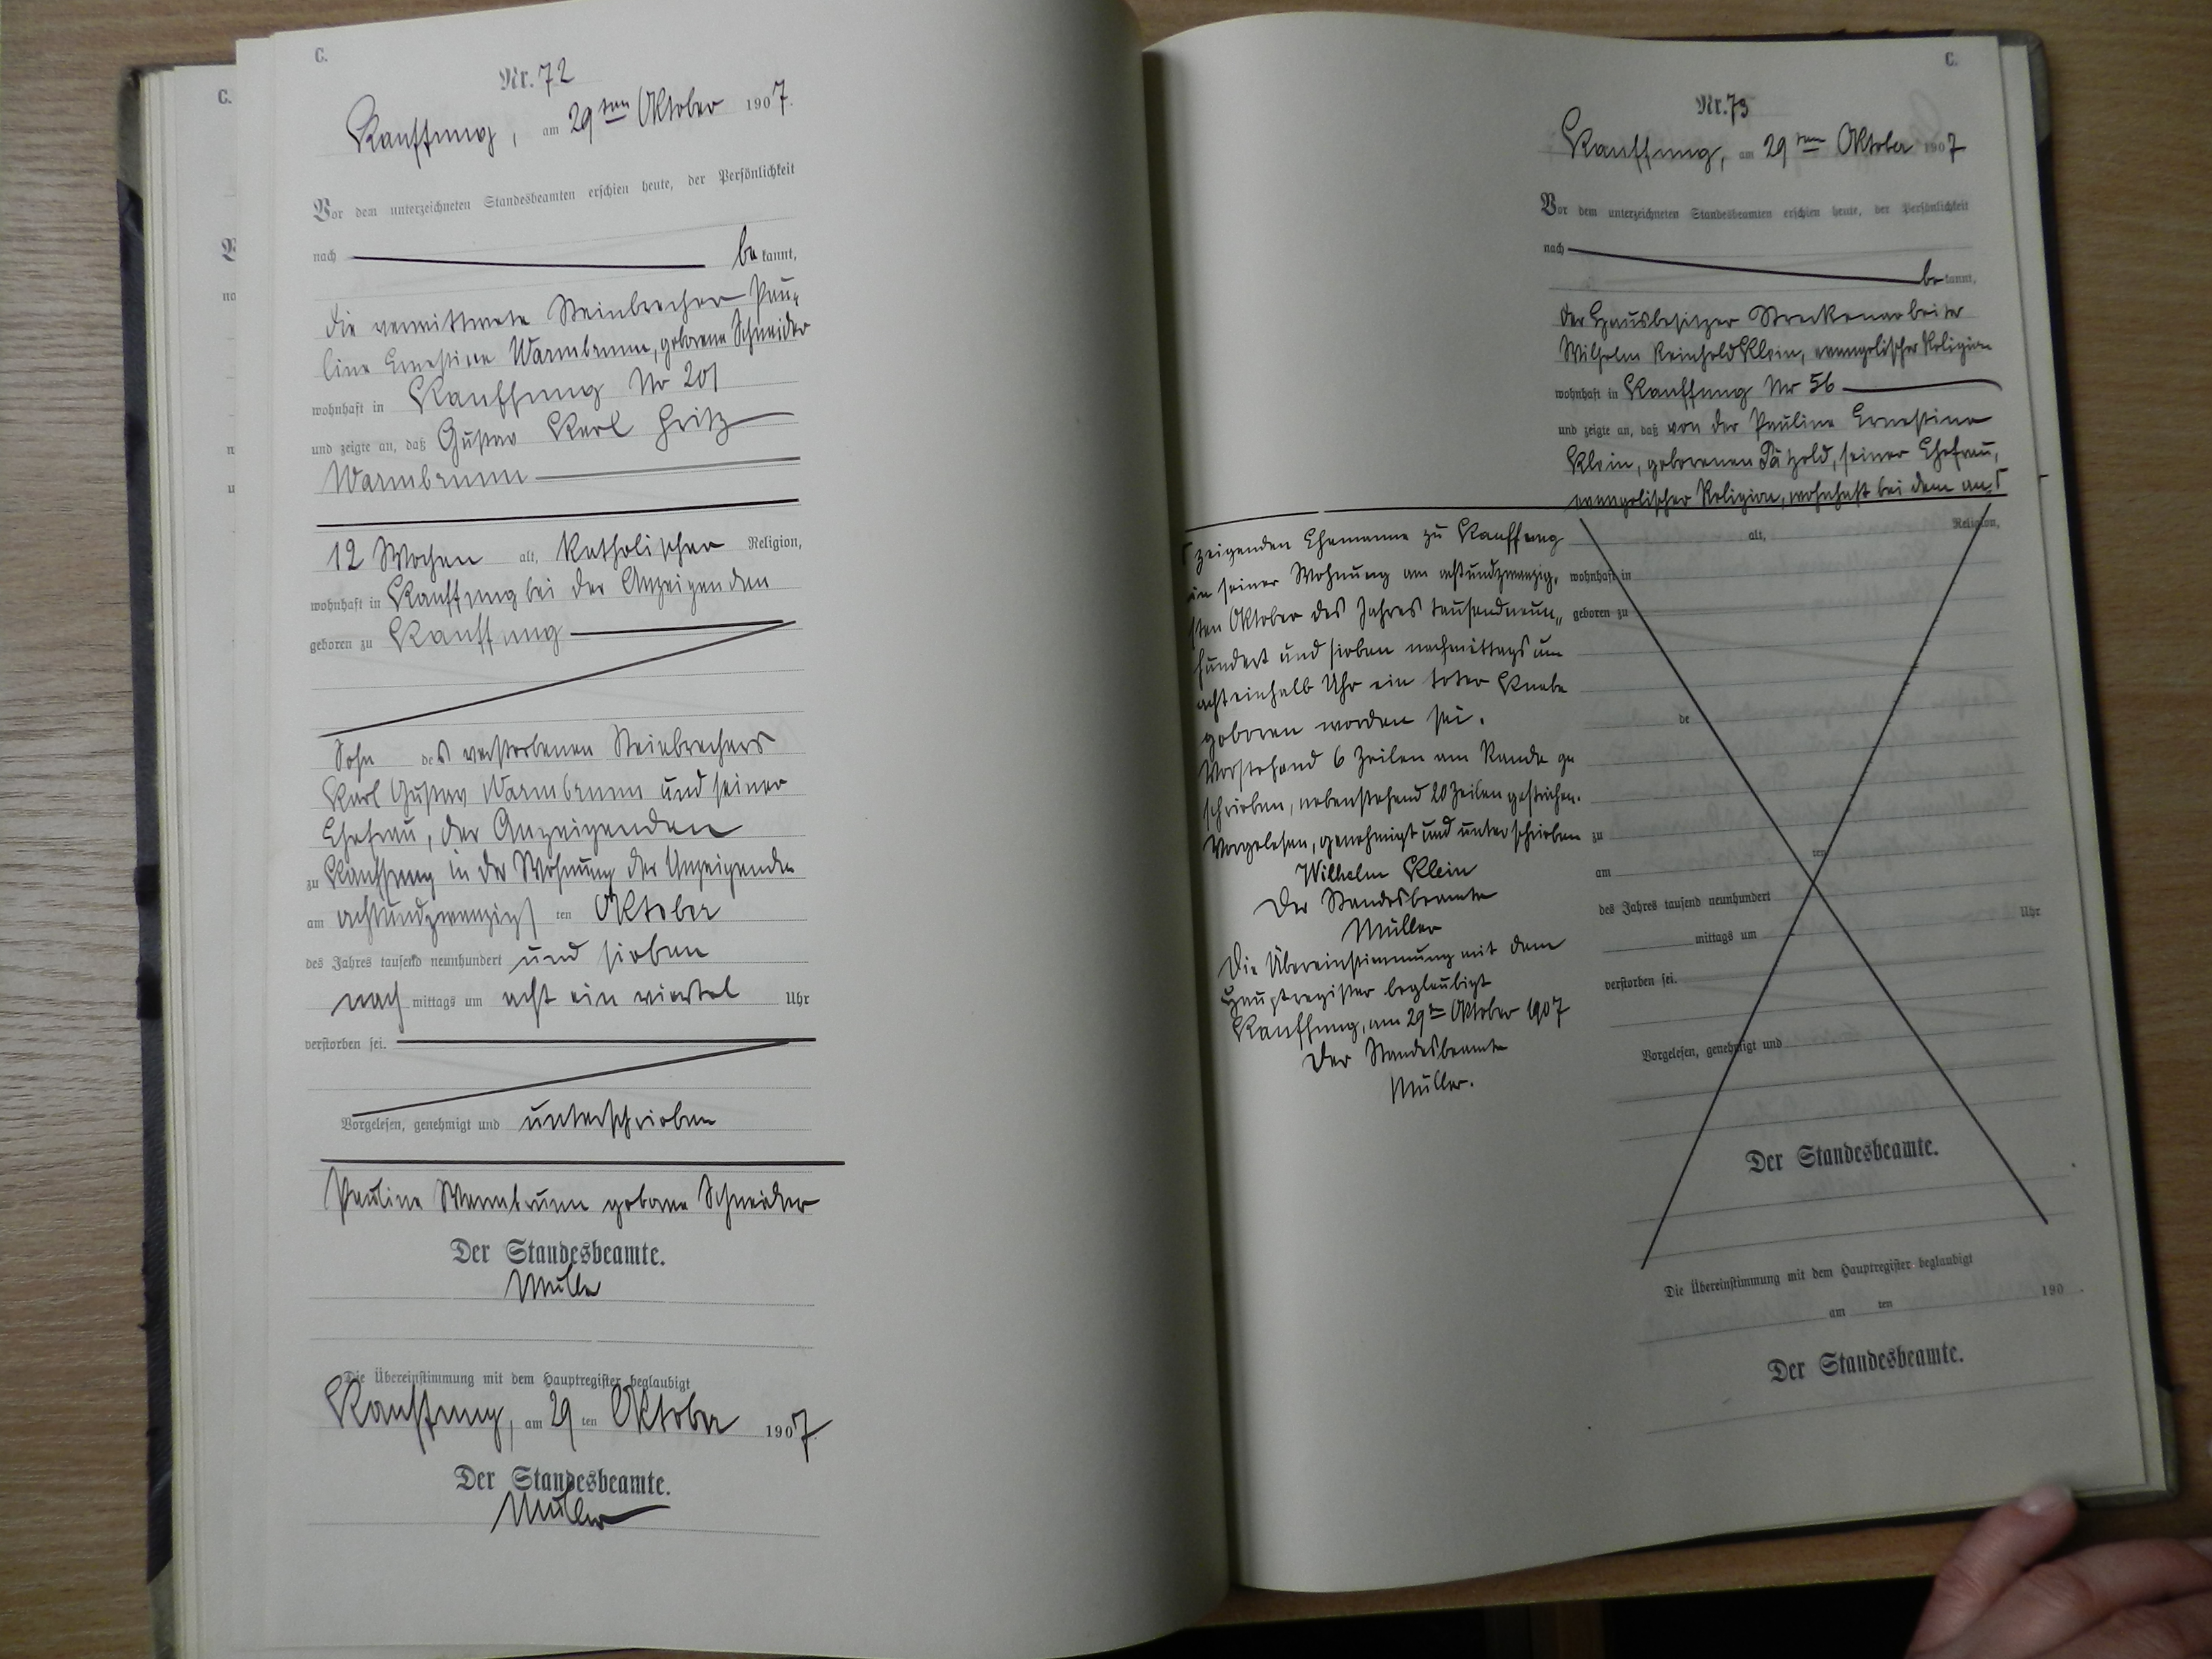 C.
Nr. 72
Kauffung, am 29ten Oktober 1907.
Vor dem unterzeichneten Standesbeamten erschien heute, der Persönlichkeit
nach
be kannt,
die verwittwete Steinbrecher Pau-
line Ernestine Warmbrunn, geborene Schneider
wohnhaft in Kauffung No 201
und zeigte an, daß Gustav Karl Fritz
Warmbrunn
12 Wochen alt, katholischer Religion,
wohnhaft in Kauffung bei der Anzeigenden
geboren zu Kauffung
Sohn des verstorbenen Steinbrechers
Karl Gustav Warmbrunn und seiner
Ehefrau, der Anzeigenden
zu Kauffung in der Wohnung der Anzeigenden
am achtundzwanzigs ten Oktober
des Jahres tausend neunhundert und sieben
nach mittags um acht ein viertel Uhr
verstorben sei.
Vorgelesen, genehmigt und unterschrieben
Pauline Warmbrunn geborne Schneider
Der Standesbeamte.
Müller
Die Übereinstimmung mit dem Hauptregister beglaubigt
Kauffung, am 29 ten Oktober 1907.
Der Standesbeamte.
Müller
C.
Nr. 73
Kauffung, am 29ten Oktober 1907
Vor dem unterzeichneten Standesbeamten erschien heute, der Persönlichkeit
nach
be kannt,
der Hausbesitzer Streckenarbeiter
Wilhelm Reinhold Klein, evangelischer Religion
wohnhaft in Kauffung No 56
und zeigte an, daß von der Pauline Ernestine
Klein, geborenen Pätzold, seiner Ehefrau,
evangelischer Religion, wohnhaft bei dem an-
zeigenden Ehemanne zu Kauffung
in seiner Wohnung am achtundzwanzig-
sten Oktober des Jahres tausendneun-
hundert und sieben nachmittags um
achteinhalb Uhr ein toter Knabe
geboren worden sei.
Vorstehend 6 Zeilen am Rande ge
schrieben, nebenstehend 20 Zeilen gestrichen.
Vorgelesen, genehmigt und unterschrieben
Wilhelm Klein
Der Standesbeamte
Müller
Die Übereinstimmung mit dem
Hauptregister beglaubigt
Kauffung, am 29ten Oktober 1907
Der Standesbeamte
Müller.
alt, Religion,
wohnhaft in
geboren zu
de
zu
am ten
des Jahres tausend neunhundert
mittags um Uhr
verstorben sei.
Vorgelesen, genehmigt und
Der Standesbeamte.
Die Übereinstimmung mit dem Hauptregister beglaubigt
am ten 190 .
Der Standesbeamte.